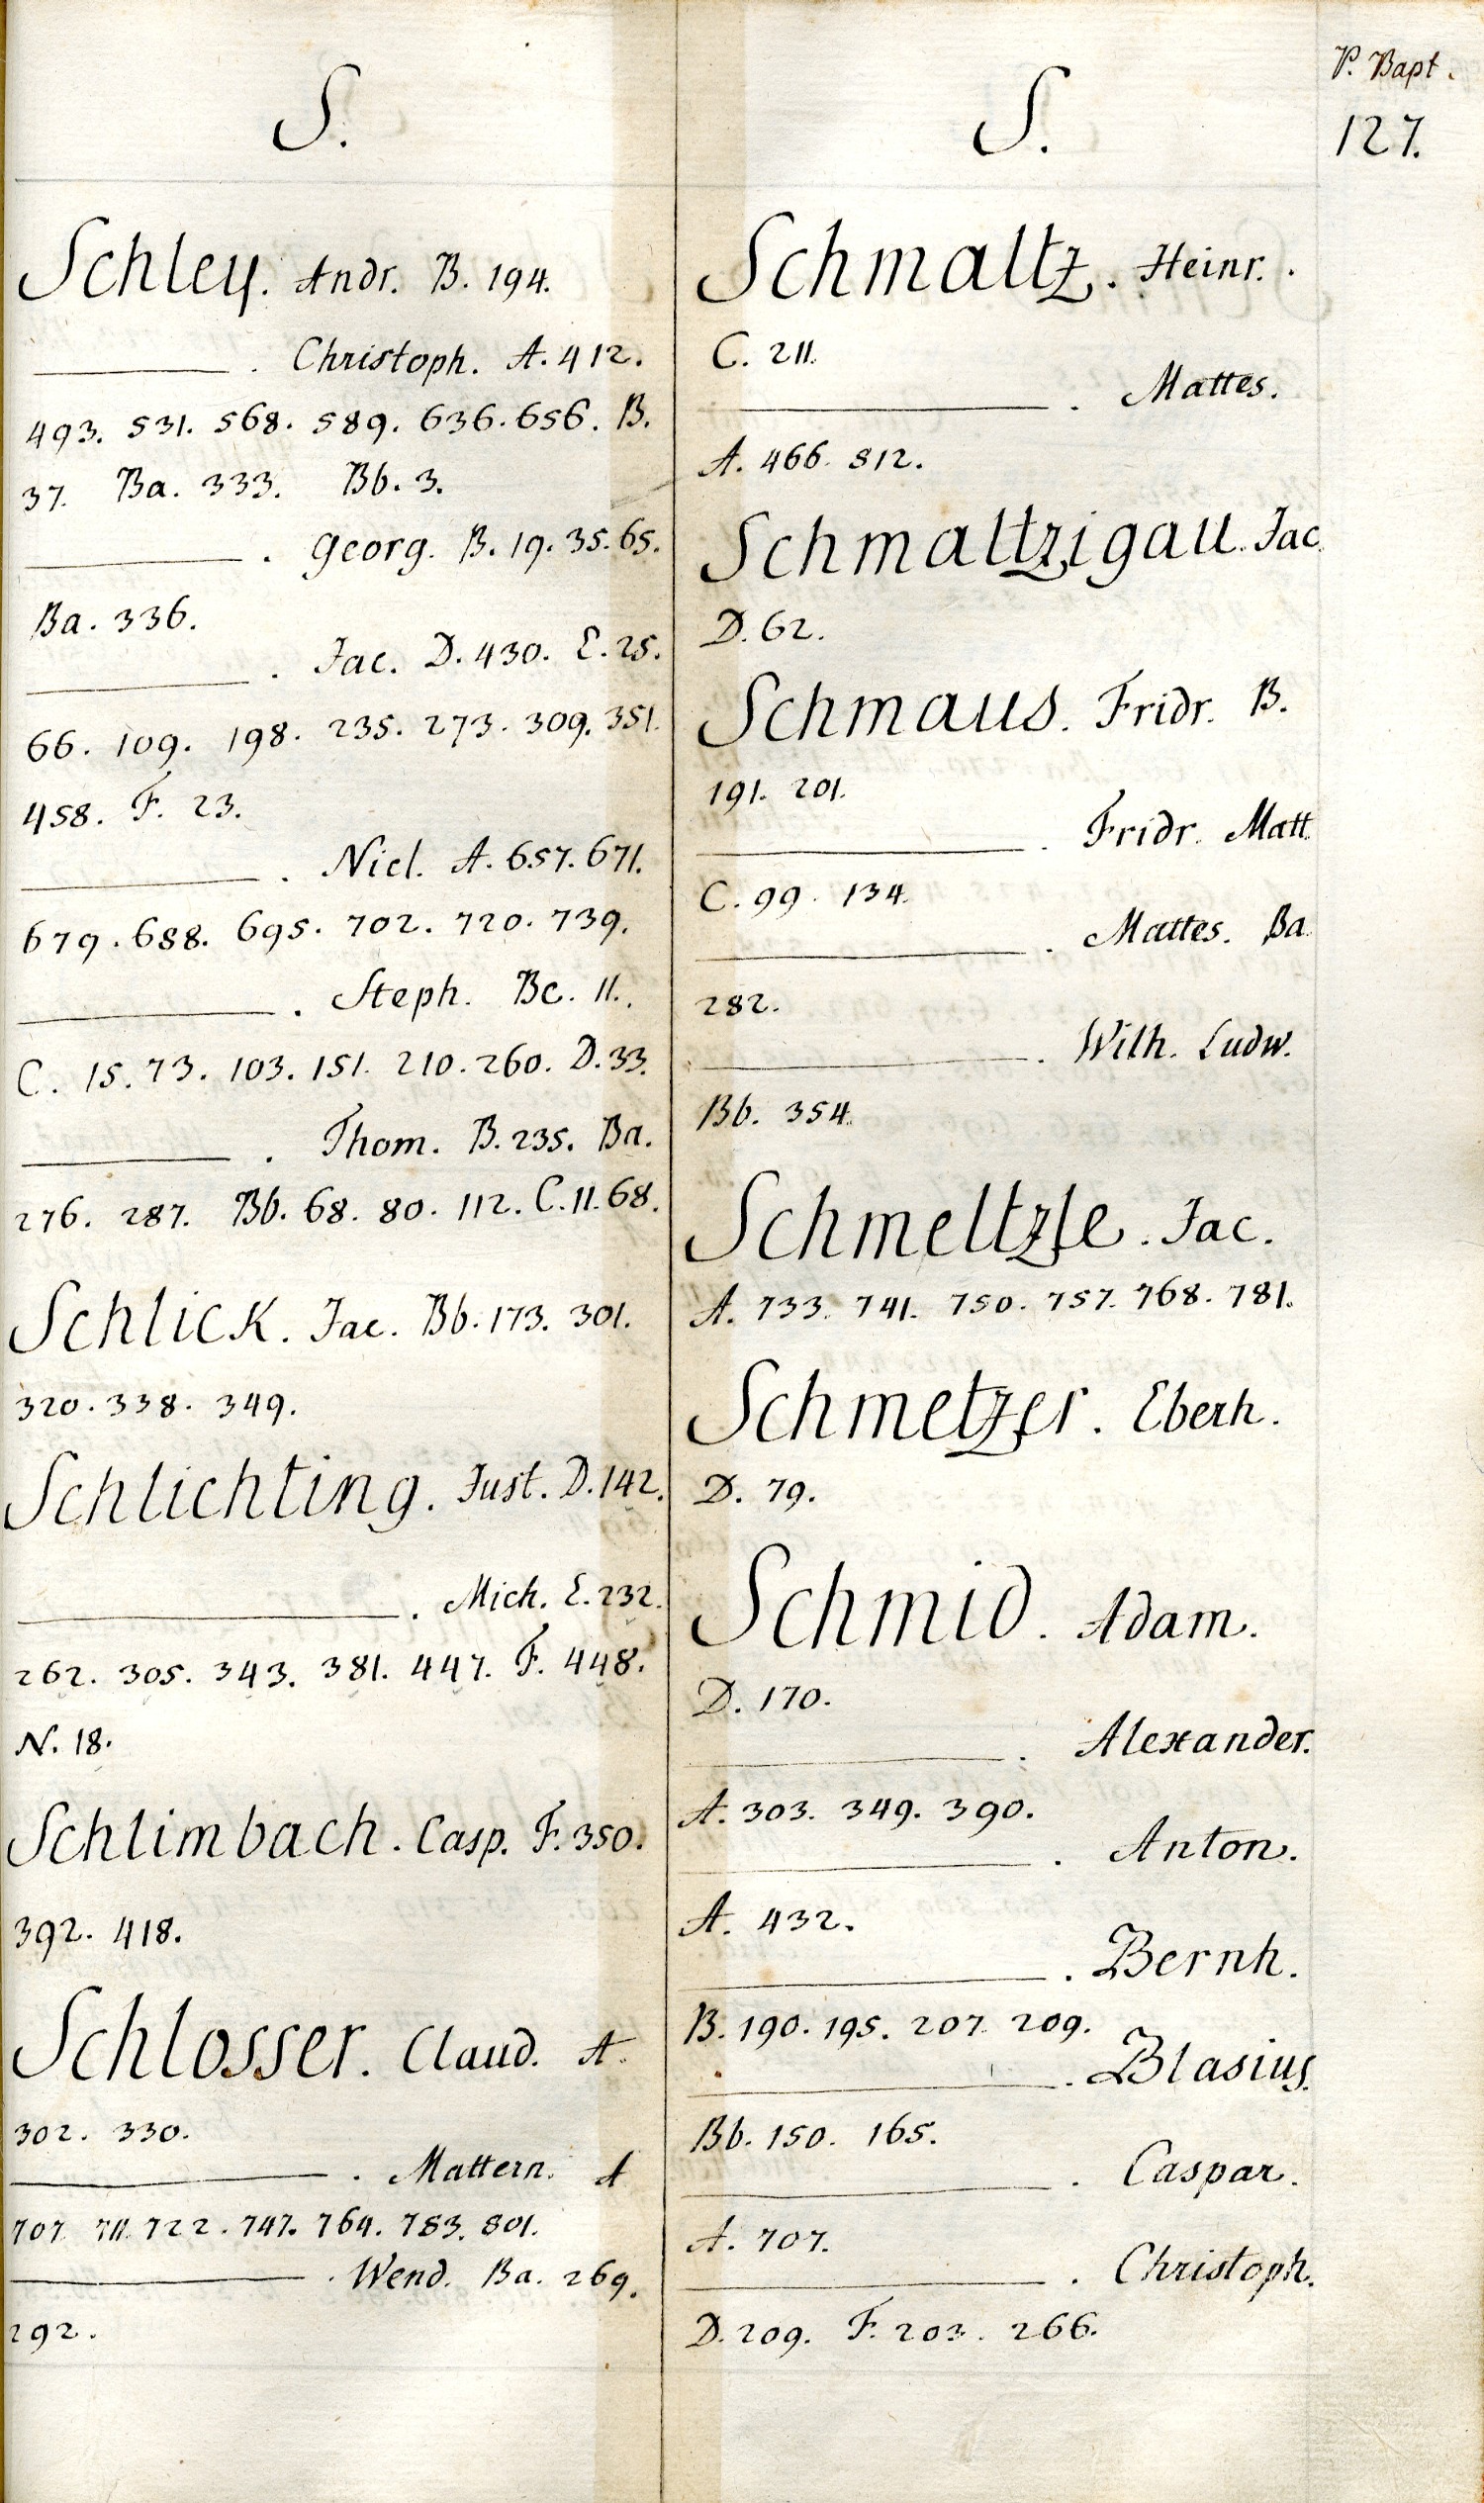 S.
Schley. Andr. B. 194.
. Christoph. A. 412.
493. 531. 568. 589. 636. 656. B.
37. Ba. 333. Bb. 3.
. Georg. B. 19. 35. 65.
Ba. 336.
. Jac. D. 430. E. 25.
66. 109. 198. 235. 273. 309. 351.
458. F. 23.
. Nicl. A. 657. 671.
679. 688. 695. 702. 720. 739.
. Steph. Bc. 11.
C. 15. 73. 103. 151. 210. 260. D. 33.
. Thom. B. 235. Ba.
276. 287. Bb. 68. 80. 112. C. 11. 68.
Schlick. Jac. Bb. 173. 301.
320. 338. 349.
Schlichting. Just. D. 142.
. Mich. E. 232.
262. 305. 343. 381. 447. F. 448.
N. 18.
Schlimbach. Casp. F. 350.
392. 418.
Schlosser. Claud. A.
302. 330.
. Mattern. A
707. 711. 722. 747. 764. 783. 801.
. Wend. Ba. 269.
292.
S.
P. Bapt.
127.
Schmaltz. Heinr.
C. 211.
. Mattes.
A. 466. 812.
Schmaltzigau. Jac.
D. 62.
Schmaus. Fridr. B.
191. 201.
. Fridr. Matt.
C. 99. 134.
. Mattes. Ba.
282.
. Wilh. Ludw.
Bb. 354.
Schmeltzle. Jac.
A. 733. 741. 750. 757. 768. 781.
Schmetzer. Eberh.
D. 79.
Schmid. Adam.
D. 170.
. Alexander.
A. 303. 349. 390.
. Anton.
A. 432.
. Bernh.
B. 190. 195. 207. 209.
. Blasius.
Bb. 150. 165.
. Caspar.
A. 707.
. Christoph.
D. 209. F. 203. 266.